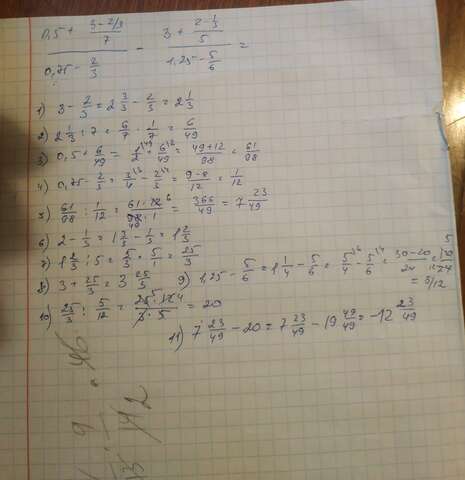 (0,5 + (3 - 2/3)/7)/(0,75 - 2/3) - (3 + (2 - 1/3)/5)/(1,25 - 5/6) =
1) 3 - 2/3 = 2 3/3 - 2/3 = 2 1/3
2) 2 1/3 : 7 = 6/7 · 1/7 = 6/49
3) 0,5 + 6/49 = 1/2 + 6/49 = (49+12)/98 = 61/98
4) 0,75 - 2/3 = 3/4 - 2/3 = (9-8)/12 = 1/12
5) 61/98 : 1/12 = (61·12)/(98·1) = 366/49 = 7 23/49
6) 2 - 1/3 = 1 3/3 - 1/3 = 1 2/3
7) 1 2/3 : 5 = 5/3 · 5/1 = 25/3
8) 3 + 25/3 = 3 25/3
9) 1,25 - 5/6 = 1 1/4 - 5/6 = 5/4 - 5/6 = (30-20)/24 = 10/24 = 5/12
10) 25/3 : 5/12 = (25·12)/(3·5) = 20
11) 7 23/49 - 20 = 7 23/49 - 19 49/49 = -12 23/49